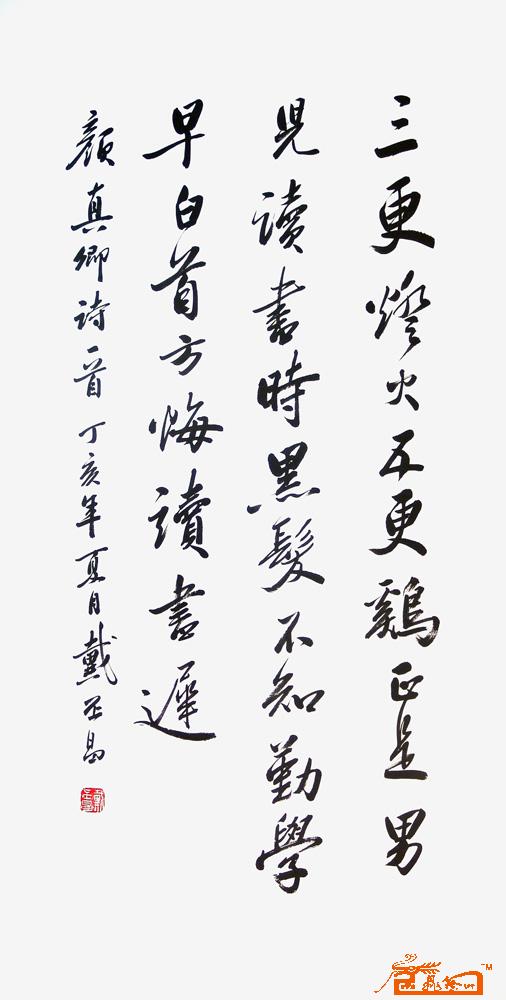 三更燈火五更鷄正是男
児讀書時黑髮不知勤學
早白首方悔讀書遲
顏真卿诗一首丁亥年夏月戴丕昌